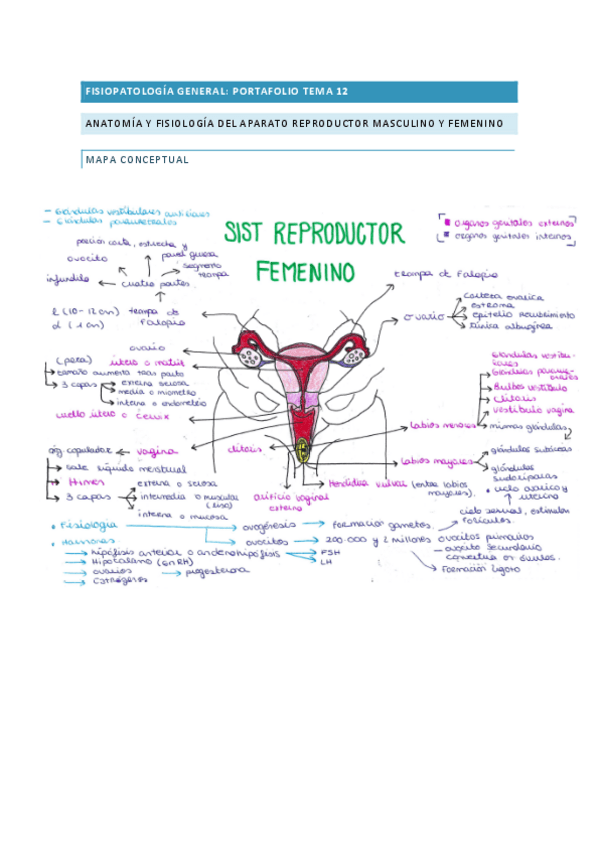 FISIOPATOLOGÍA GENERAL: PORTAFOLIO TEMA 12
ANATOMÍA Y FISIOLOGÍA DEL APARATO REPRODUCTOR MASCULINO Y FEMENINO
MAPA CONCEPTUAL
- Glándulas vestibulares
- Glándulas parauretrales
SIST REPRODUCTOR
FEMENINO
organos genitales externos
organos genitales internos
porción corta, estrecha y
pared gruesa
ovocito
segmento
trompa
infundíbulo
cuatro partes.
l (10-12 cm)
d (1 cm)
trompa de
Falopio
trompa de Falopio
ovario
corteza ovárica
estroma
epitelio recubrimiento
túnica albugínea
ovario
(pera) útero o matriz
tamaño aumenta tras parto
3 capas
externa serosa
media o miometrio
interna o endometrio
cuello útero o cervix
Glándulas
Glándulas
Bulbos vestíbulo
Clítoris
vestíbulo vagina
labios menores
mismas glándulas
org copulador
vagina
clítoris
labios mayores
glándulas sebáceas
glándulas
sudoríparas
sale líquido menstrual
Himen
3 capas
externa o serosa
intermedia o muscular
(liso)
interna o mucosa
orificio vaginal
externo
Hendidura vulvar (entre labios
mayores).
ciclo ovárico y
uterino
ciclo sexual, estimulan
folículos.
Fisiología
ovogénesis
formación gametos.
Hormonas
ovocitos
200 000 y 2 millones ovocitos primarios
ovocito secundario
convertirá en óvulos.
Formación
hipófisis anterior o adenohipófisis
FSH
LH
Hipotálamo (GnRH)
ovarios
progesterona
Estrógenos